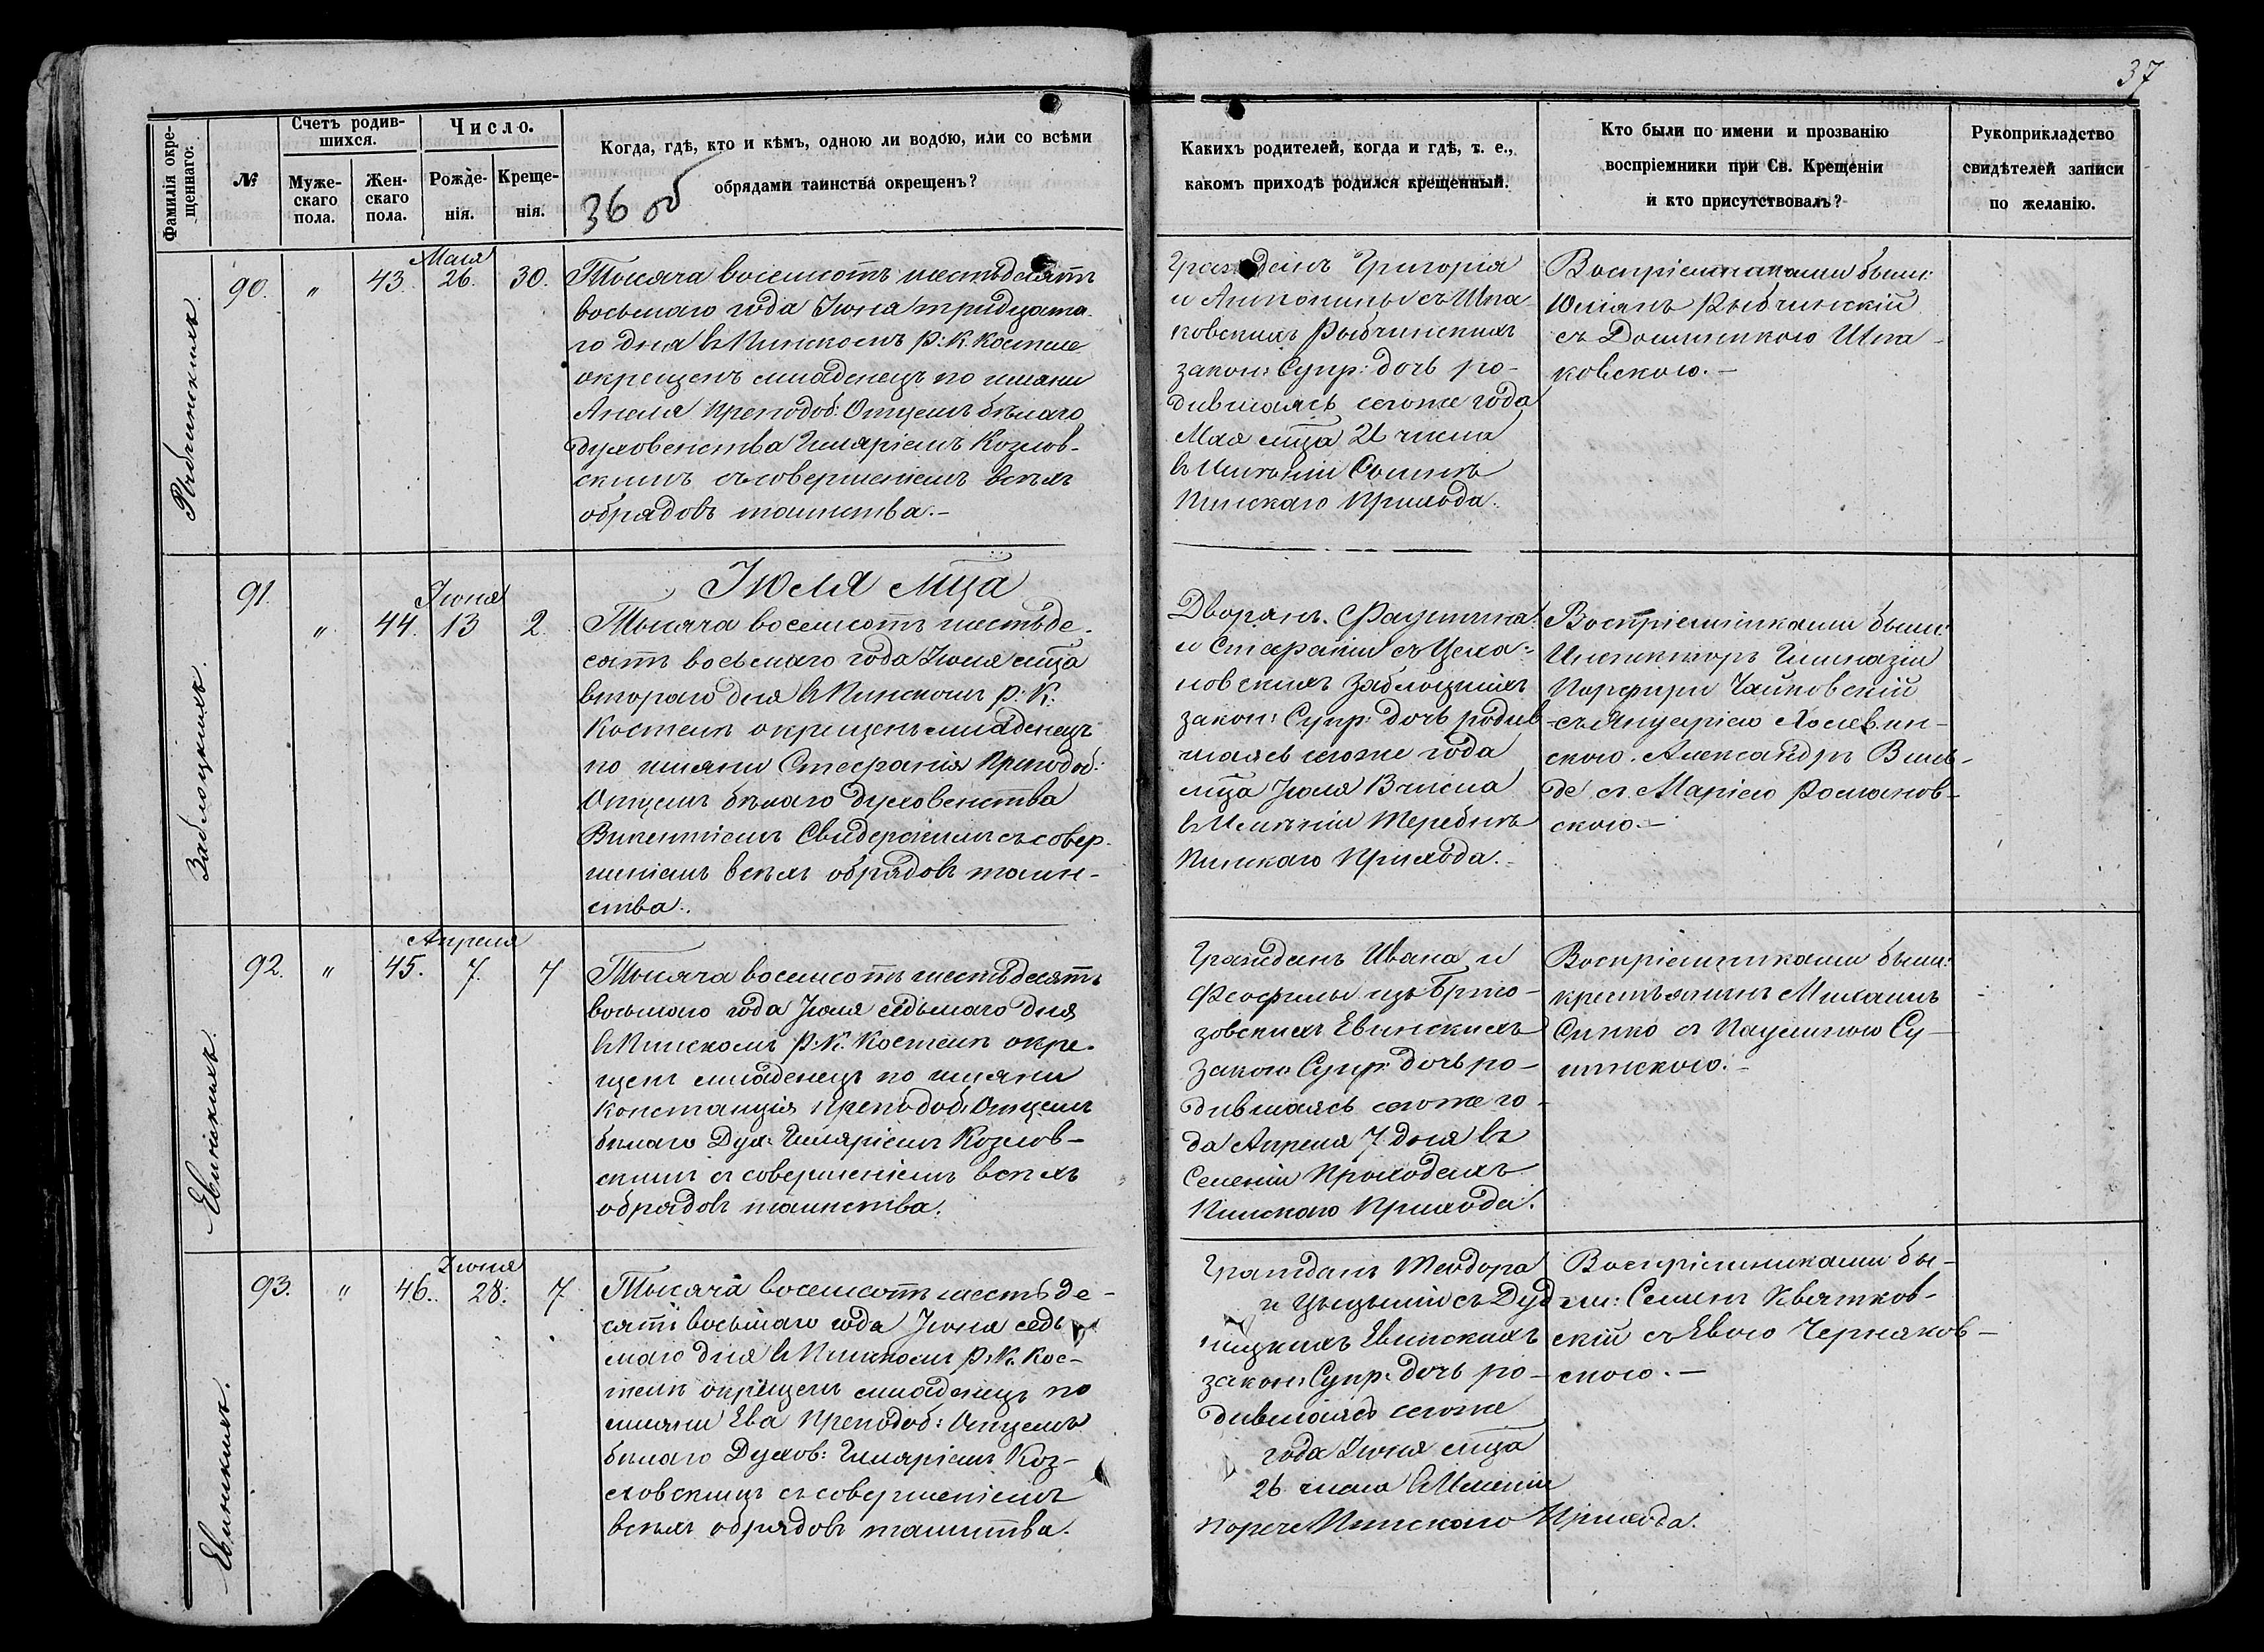 37
Фамилія окре-
щеннаго:
№
Счетъ родив-
шихся.
Муже-
скаго
пола.
Жен-
скаго
пола.
Число.
Рожде-
нія.
Креще-
нія.
Когда, гдѣ, кто и кѣмъ, одною ли водою, или со всѣми
обрядами таинства окрещенъ?
36 об
Какихъ родителей, когда и гдѣ, т. е.,
какомъ приходѣ родился крещенный.
Кто были по имени и прозванію
воспріемники при Св. Крещеніи
и кто присутствовалъ?
Рукоприкладство
свидѣтелей записи
по желанію.
Рыбчинскихъ.
90. " 43. Мая 26. 30.
Тысяча восемсотъ шестьдесятъ
восьмаго года Іюня тридцата-
го дня въ Пинскомъ Р: К. Костеле
окрещенъ младенецъ по имяни
Анеля Преподоб: Отцемъ бѣлаго
духовенства Гиляріемъ Козлов-
скимъ съ совершеніемъ всѣхъ
обрядовъ таинства.-
Гражданъ Григорія
и Антонины съ Шпа-
ковскихъ Рыбчинскихъ
закон: Супр: дочь ро-
дившаяся сегоже года
Мая мца 26 числа
въ Имѣніи
Пинскаго Прихода.
Воспріемниками были:
Юліянъ Рыбчинскій
съ Доминикою Шпа-
ковскою.-
Іюля мца
Заблоцкихъ.
91. " 44. Іюня 13 2.
Тысяча восемсотъ шестьде-
сятъ восьмаго года Іюля мца
втораго дня въ Пинскомъ Р. К.
Костелѣ окрещенъ младенецъ
по имяни Стефанія Преподоб:
Отцемъ бѣлаго духовенства
Викентіемъ Свидерскимъ съ совер-
шеніемъ всѣхъ обрядовъ таин-
ства.
Дворянъ. Фаустина
и Стефаніи съ Цеха-
новскихъ Заблоцкихъ
закон: Супр: дочь родив-
шаясь сегоже года
мца Іюня 13 числа
въ Имѣніи Теребинѣ
Пинскаго Прихода.-
Воспріемниками были:
Инспекторъ Гимназіи
Порфири Чайковскій
съ Януаріею
скою. Александръ Виль-
де съ Маріею Романов-
скою.-
Евинскихъ.
92. " 45. Апреля 7. 7
Тысяча восемсотъ шестьдесятъ
восьмаго года Іюля седьмаго дня
въ Пинскомъ Р. К. Костелѣ окре-
щенъ младенецъ по имяни
Констанція Преподоб: Отцемъ
бѣлаго Дух: Гиляріемъ Козлов-
скимъ съ совершеніемъ всѣхъ
обрядовъ таинства.
Гражданъ Ивана и
Феофилы изъ Брто-
зовскихъ Евинскихъ
закон: Супр: дочь ро-
дившаясь сегоже го-
да Апреля 7 дня въ
Селеніи Проходахъ
Пинскаго Прихода.
Воспріемниками были:
крестьянинъ Михаилъ
съ Паулиною Су-
шинскою.-
Евинскихъ.
93. " 46. Іюня 28. 7.
Тысяча восемсотъ шестьде-
сятъ восьмаго года Іюля седь-
маго дня въ Пинскомъ Р. К. Кос-
телѣ окрещенъ младенецъ по
имяни Ева Преподоб: Отцемъ
бѣлаго Духов: Гиляріемъ Коз-
ловскимъ съ совершеніемъ
всѣхъ обрядовъ таинства.
Гражданъ Теодора
и съ Дуд-
ницкихъ Евинскихъ
закон: Супр: дочь ро-
дившаясь сегоже
года Іюня мца
26 числа въ Имѣніи
Порече Пинскаго Прихода.
Воспріемниками бы-
ли: Семенъ Квятков-
скій съ Евою Черняков-
скою.-